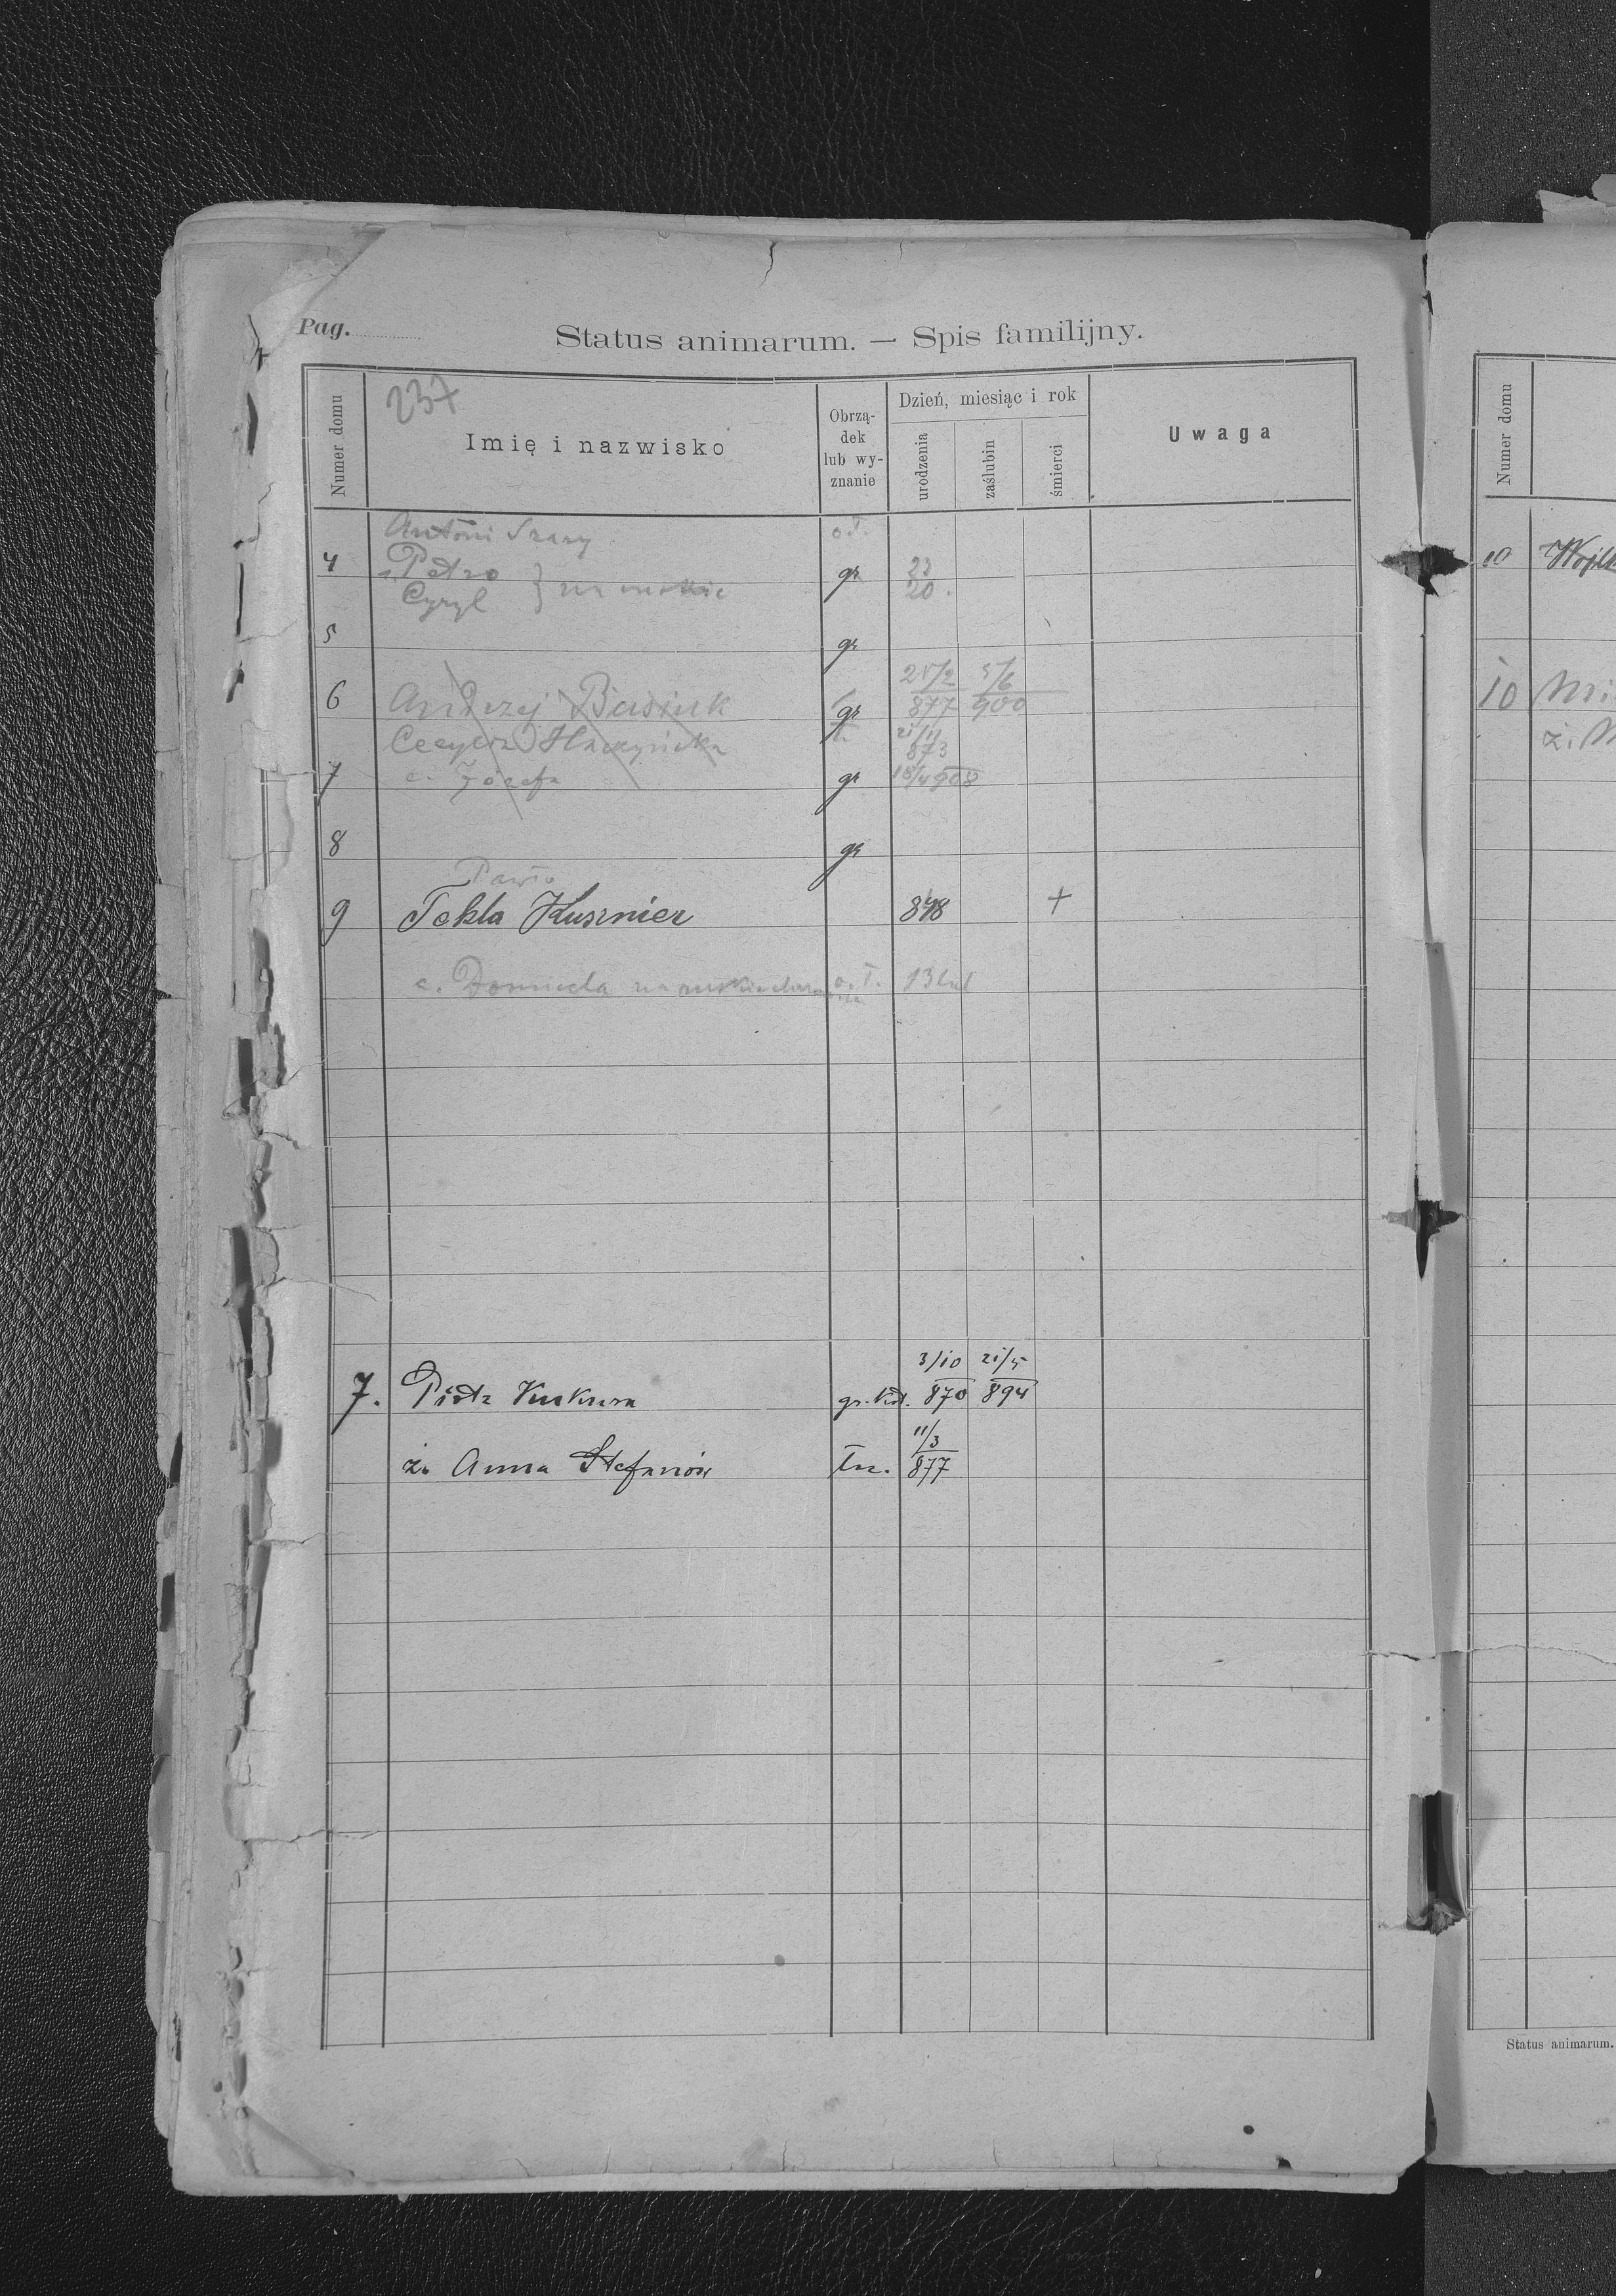 Pag.
Status animarum. — Spis familijny.
237
Numer domu
Imię i nazwisko
Obrzą-
dek
lub wy-
znanie
Dzień, miesiąc i rok
urodzenia
zaślubin
śmierci
Uwaga
Antoni Szary
4 Petro gr 22
Cyryl } 20.
5 gr
2 5/6
6 Andrzej Basiuk gr 877 900
21/11
Cecylia 873
7 c. Józefa gr 18/4 908
8 gr
Pawło
9 Tekla Kusznier 848 +
c. Domicela o. ł. 13
3/10 21/5
7. Piotr Kukura gr. kat. 870 894
11/3
ż. Anna Stefanów łac. 877
Numer domu
10
10
ż. M
Status animarum.